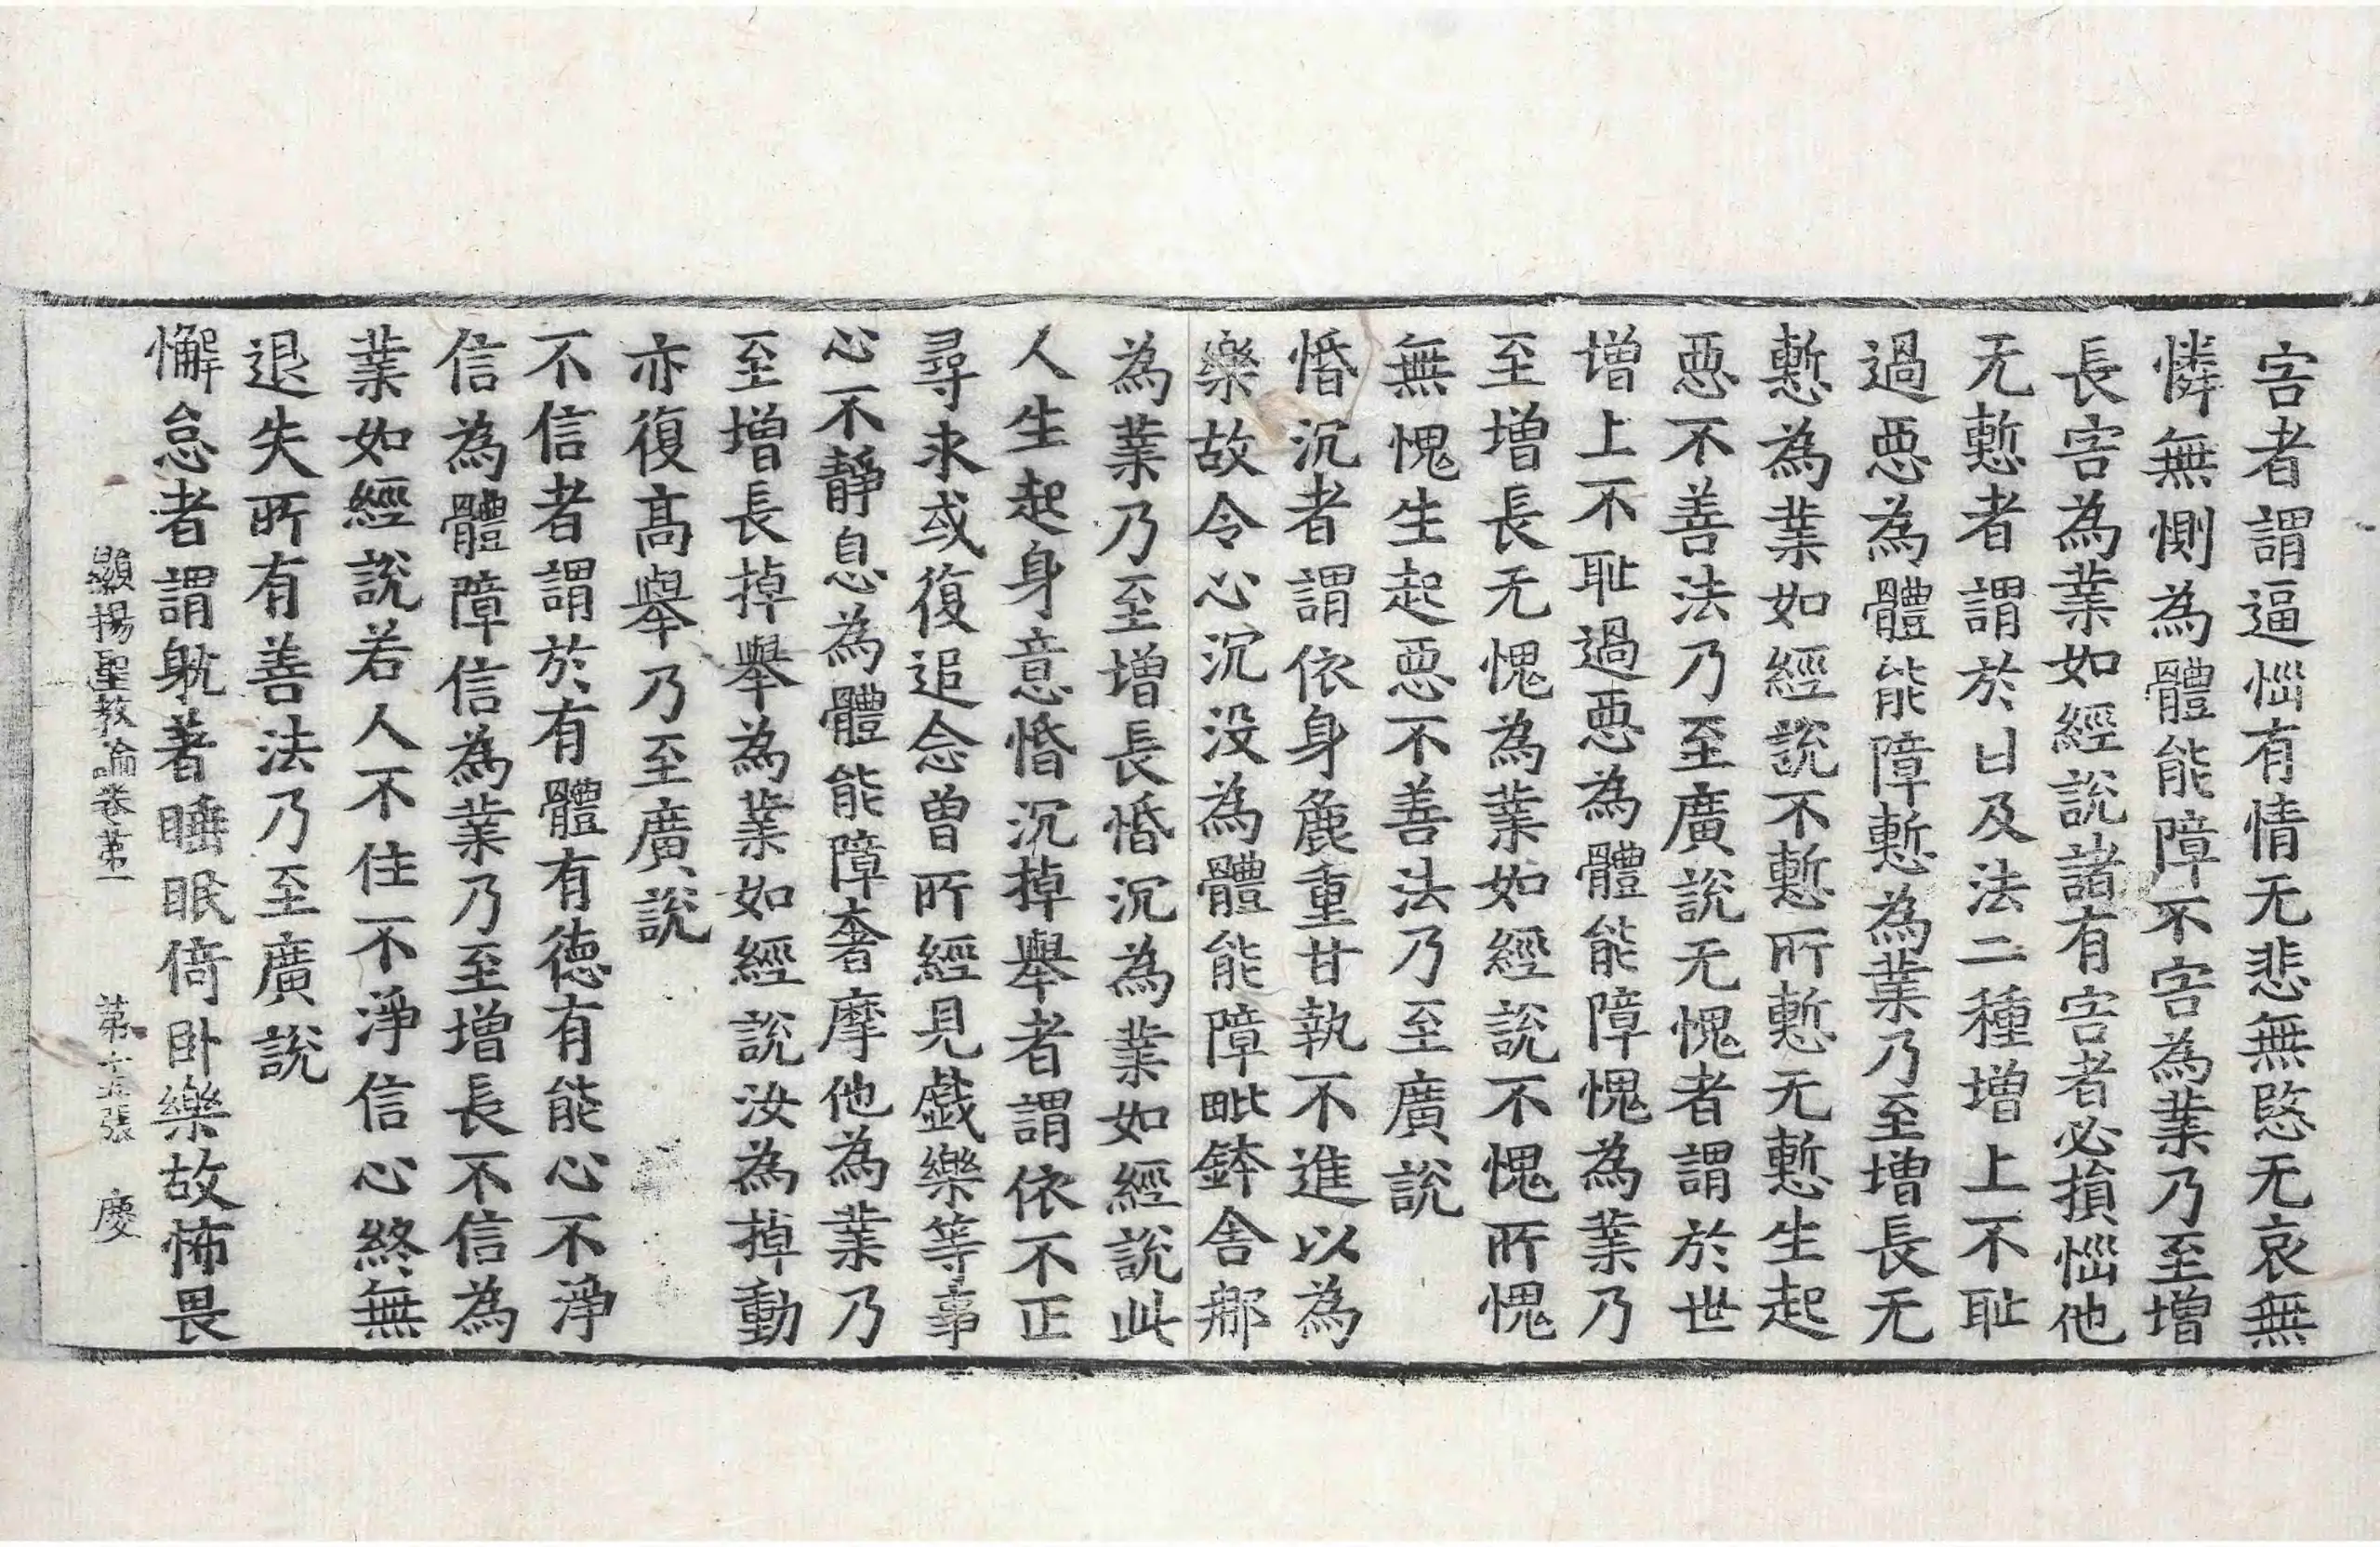 害者謂逼惱有情无悲無愍无哀無
憐無惻為體能障不害為業乃至增
長害為業如經說諸有害者必損惱他
无慙者謂於自及法二種增上不耻
過惡為體能障慙為業乃至增長无
慙為業如經說不慙所慙无慙生起
惡不善法乃至廣說无愧者謂於世
增上不耻過惡為體能障愧為業乃
至增長无愧為業如經說不愧所愧
無愧生起惡不善法乃至廣說
惛沉者謂依身麁重甘執不進以為
樂故令心沉没為體能障毗鉢舍那
為業乃至增長惛沉為業如經說此
人生起身意惛沉掉舉者謂依不正
尋求或復追念曾所經見戱樂等事
心不静息為體能障奢摩他為業乃
至增長掉舉為業如經說汝為掉動
亦復髙舉乃至廣說
不信者謂於有體有德有能心不淨
信為體障信為業乃至增長不信為
業如經說若人不住不淨信心終無
退失所有善法乃至廣說
懈怠者謂躭著睡眠倚卧樂故怖畏
顯揚聖教論卷第一 第十五張 慶